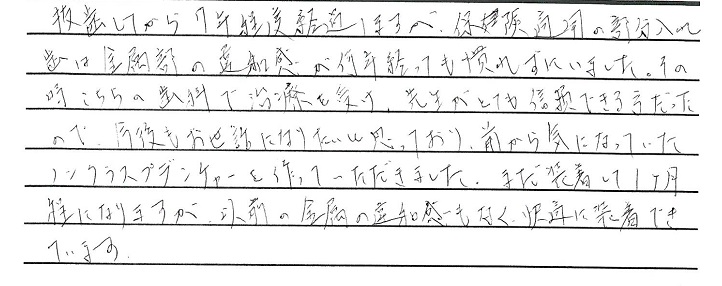 抜歯してから7年程度経過しますが、保健険適用の部分入れ
歯は金属部の違和感が何年経っても慣れずにいました。その
時こちらの歯科で治療を受け、先生がとても信頼できる方だった
ので、今後もお世話になりたいと思っており、前から気になっていた
ノンクラスプデンチャーを作っていただきました。まだ装着して1ヶ月
程になりますが、以前の金属の違和感もなく、快適に装着でき
ています。